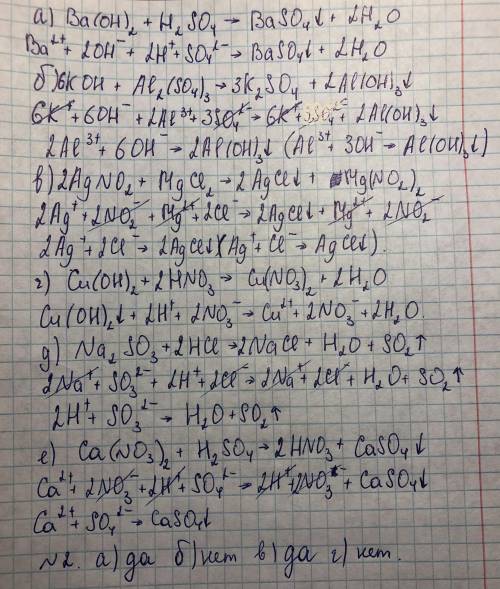 а) Ba(OH)₂ + H₂SO₄ → BaSO₄↓ + 2H₂O
Ba²⁺ + 2OH⁻ + 2H⁺ + SO₄²⁻ → BaSO₄↓ + 2H₂O
б) 6KOH + Al₂(SO₄)₃ → 3K₂SO₄ + 2Al(OH)₃↓
6K⁺ + 6OH⁻ + 2Al³⁺ + 3SO₄²⁻ → 6K⁺ + 3SO₄²⁻ + 2Al(OH)₃↓
2Al³⁺ + 6OH⁻ → 2Al(OH)₃↓ (Al³⁺ + 3OH⁻ → Al(OH)₃↓)
в) 2AgNO₂ + MgCl₂ → 2AgCl↓ + Mg(NO₂)₂
2Ag⁺ + 2NO₂⁻ + Mg²⁺ + 2Cl⁻ → 2AgCl↓ + Mg²⁺ + 2NO₂⁻
2Ag⁺ + 2Cl⁻ → 2AgCl↓ (Ag⁺ + Cl⁻ → AgCl↓).
г) Cu(OH)₂ + 2HNO₃ → Cu(NO₃)₂ + 2H₂O
Cu(OH)₂↓ + 2H⁺ + 2NO₃⁻ → Cu²⁺ + 2NO₃⁻ + 2H₂O.
д) Na₂SO₃ + 2HCl → 2NaCl + H₂O + SO₂↑
2Na⁺ + SO₃²⁻ + 2H⁺ + 2Cl⁻ → 2Na⁺ + 2Cl⁻ + H₂O + SO₂↑
2H⁺ + SO₃²⁻ → H₂O + SO₂↑
е) Ca(NO₃)₂ + H₂SO₄ → 2HNO₃ + CaSO₄↓
Ca²⁺ + 2NO₃⁻ + 2H⁺ + SO₄²⁻ → 2H⁺ + 2NO₃⁻ + CaSO₄↓
Ca²⁺ + SO₄²⁻ → CaSO₄↓
№2. а) да б) нет в) да г) нет.